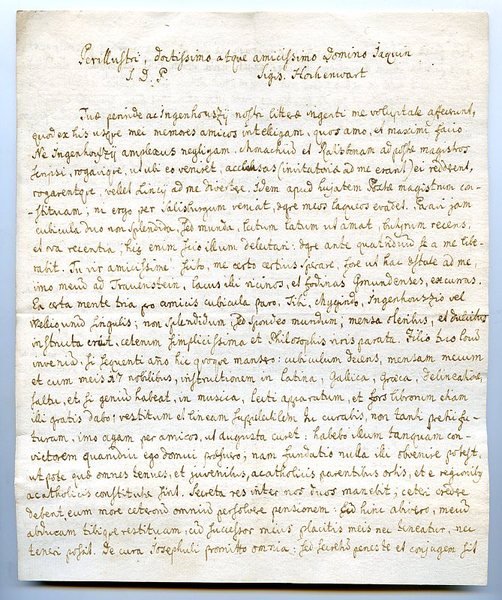 Perillustri, doctissimo atque amicissimo Domino Jaquin
S. D. P. Sigis. Hochenwart
Tuæ perinde ac Ingenhouszÿ nostri litteræ ingenti me voluptate affecerunt,
quod ex his usque mei memores amicos intelligam, quos amo, et maximi facio.
Ne Ingenhouszÿ amplexus negligam. Monachium et Ratisbonam ad postæ magistros
scripsi, rogavique, ut ubi eo veniret, acclusas (invitatoria ad me erant) ei reddant,
rogarentque, vellet Lincÿ ad me divertere. Idem apud hujatem Postæ magistrum con-
stituam; ni ergo per Salisburgum veniat, ægre meos laqueos evadet. Paravi jam
cubicula duo non splendida, sed munda, lectum latum ut amat, butyrum recens,
et ova recentia, his enim scio illum delectari: ægre ante quatriduum se a me libe-
rabit. Tu vir amicissime! scito, me certo certius sperare, fore ut hac æstate ad me,
imo mecum ad Traunstein, lacus illi vicinos, et fodinas Gmundenses, excurras.
Ea certa mente tria pro amicis cubicula paro. Tibi, Ingenhouszio vel
singulis; non splendidum, sed spondeo mundum; mensa oleribus, et
instructa erit, ceterum simplicissima et Philosophis viris parata. Filio tuo locum
inveni. Is sequenti año hic quoque manserò: cubiculum decens, mensam mecum
et cum meis 17 nobilibus, instructionem in latina, Gallica, Græca, delineatione,
saltu, et si genium habeat, in musica, lecti apparatum, et fors librorum etiam
illi gratis dabo: vestitum et lineam suppellectilem tu curabis, non tanti pretii fu-
turam, imo agam per amicos, ut augusta curet: habebo illum tanquam con-
victorem quamdiu ego domui præfuero; nam fundatio nulla illi obvenire potest,
ut pote quæ omnes tenues, et juvenibus, acatholicis parentibus ortis, et e regionibus
acatholicis constitutæ sint. Secreta res inter nos duos manebit; ceteri credere
debent, eum more ceterorum omnium persolvere pensionem: sed hinc abivero, mecum
abducam tibique restituam, cum successor meus placitis meis nec teneatur, nec
teneri possit. De cura Josephuli promitto omnia, sed secretus penes te et conjugem sit